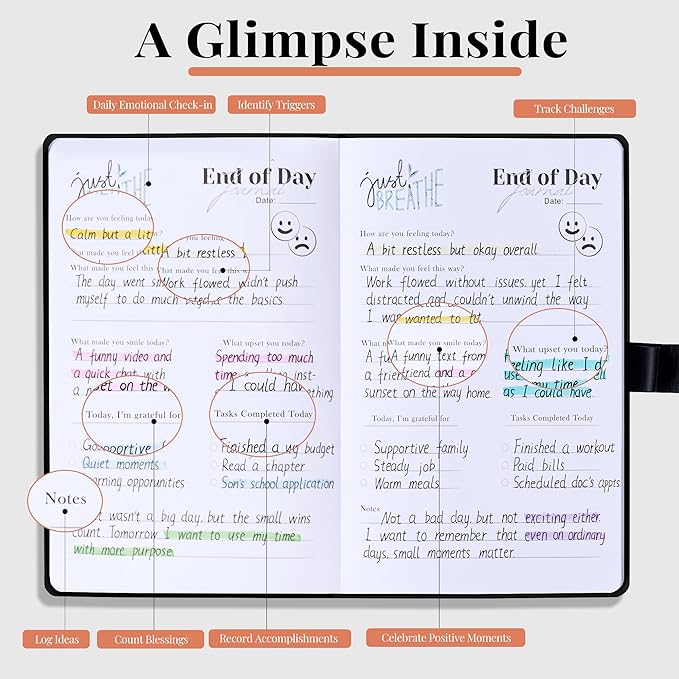 A Glimpse Inside
Daily Emotional Check-in
Identify Triggers
Track Challenges
just
BREATHE
End of Day
journal
Date:
How are you feeling today
Calm but a lit
you feeling
A bit restless
What made you feel this
What made you feel this w
The day went sm
Work flowed
didn't push
myself to do much
the basics.
What made you smile today?
What upset you today?
A funny video and
Spending too much
a quick chat with
time
set on the w
I could hav
Today, I'm grateful for
Tasks Completed Today
Finished a
budget
Quiet moments
Read a chapter
Son's school application
Notes
wasn't a big day, but the small wins
count. Tomorrow I want to use my time
with more purpose.
just
BREATHE
End of Day
journal
Date:
How are you feeling today?
A bit restless but okay overall.
What made you feel this way?
Work flowed without issues, yet I felt
distracted and couldn't unwind the way
I wanted to
What made you smile today?
What upset you today?
A funny text from
feeling like I d
a friend and a
use my time
sunset on the way home.
as I could have.
Today, I'm grateful for
Tasks Completed Today
Supportive family
Finished a workout
Steady job
Paid bills
Warm meals
Scheduled doc's appts
Notes
Not a bad day, but not exciting either.
I want to remember that even on ordinary
days, small moments matter.
Log Ideas
Count Blessings
Record Accomplishments
Celebrate Positive Moments